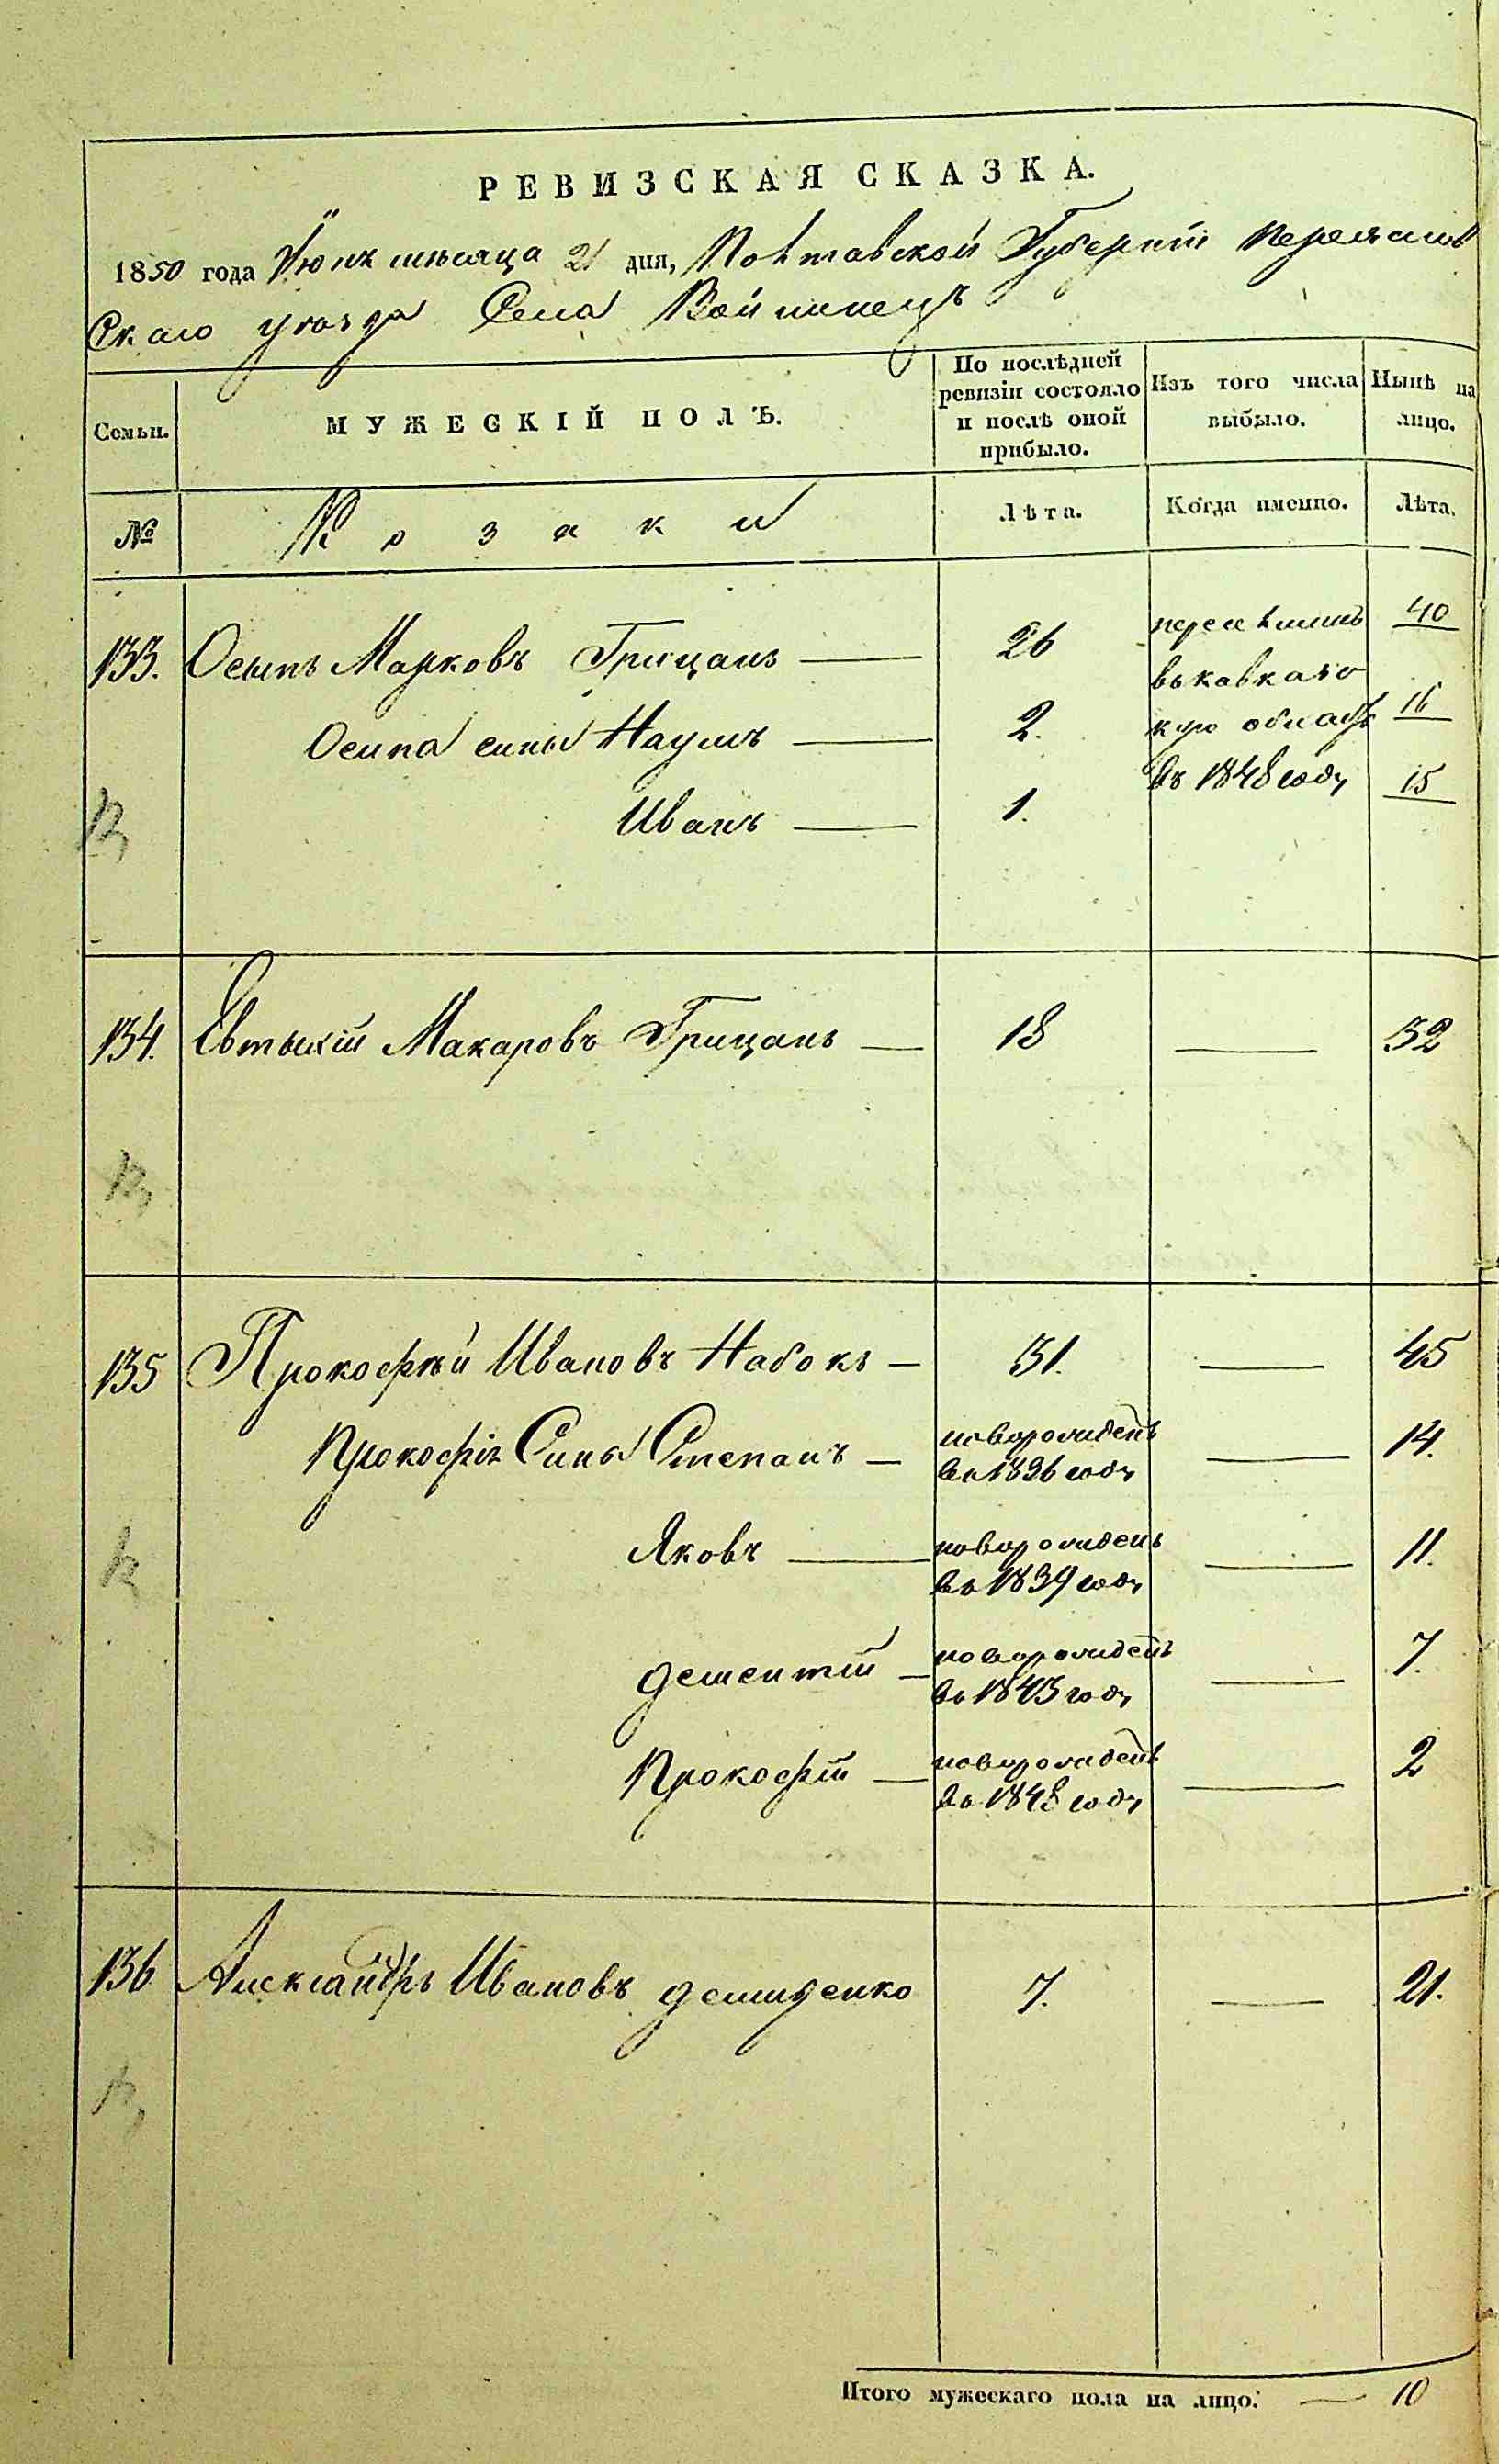 РЕВИЗСКАЯ СКАЗКА.
1850 года Июня месяца 21 дня, Полтавской Губерніи Переяслов
Скаго уѣзда Села Войтинецъ
Семьи. МУЖЕСКІЙ ПОЛЪ. По послѣдней ревизіи состояло и послѣ оной прибыло. Изъ того числа выбыло. Нынѣ на лицо.
№ Козаки Лѣта. Когда именно. Лѣта.
133. Осыпъ Марковъ Грицанъ — 26 переселилисъ 40
въ кавказс
Осипа сины Наумъ — 2. кую областъ 16
въ 1848 году
Иванъ — 1. 15
134. Евтыхій Макаровъ Грицанъ — 18 — 32
135 Прокофѣй Ивановъ Набокъ — 31. — 45
Прокофія Сины Степанъ — новорожденъ — 14.
въ 1836 году
Яковъ — новорожденъ — 11.
въ 1839 году
Дементій — новорожденъ — 7.
въ 1843 году
Прокофій — новорожденъ — 2
въ 1848 году
136 Александръ Ивановъ Демиденко 7. — 21.
Итого мужескаго пола на лицо: — 10